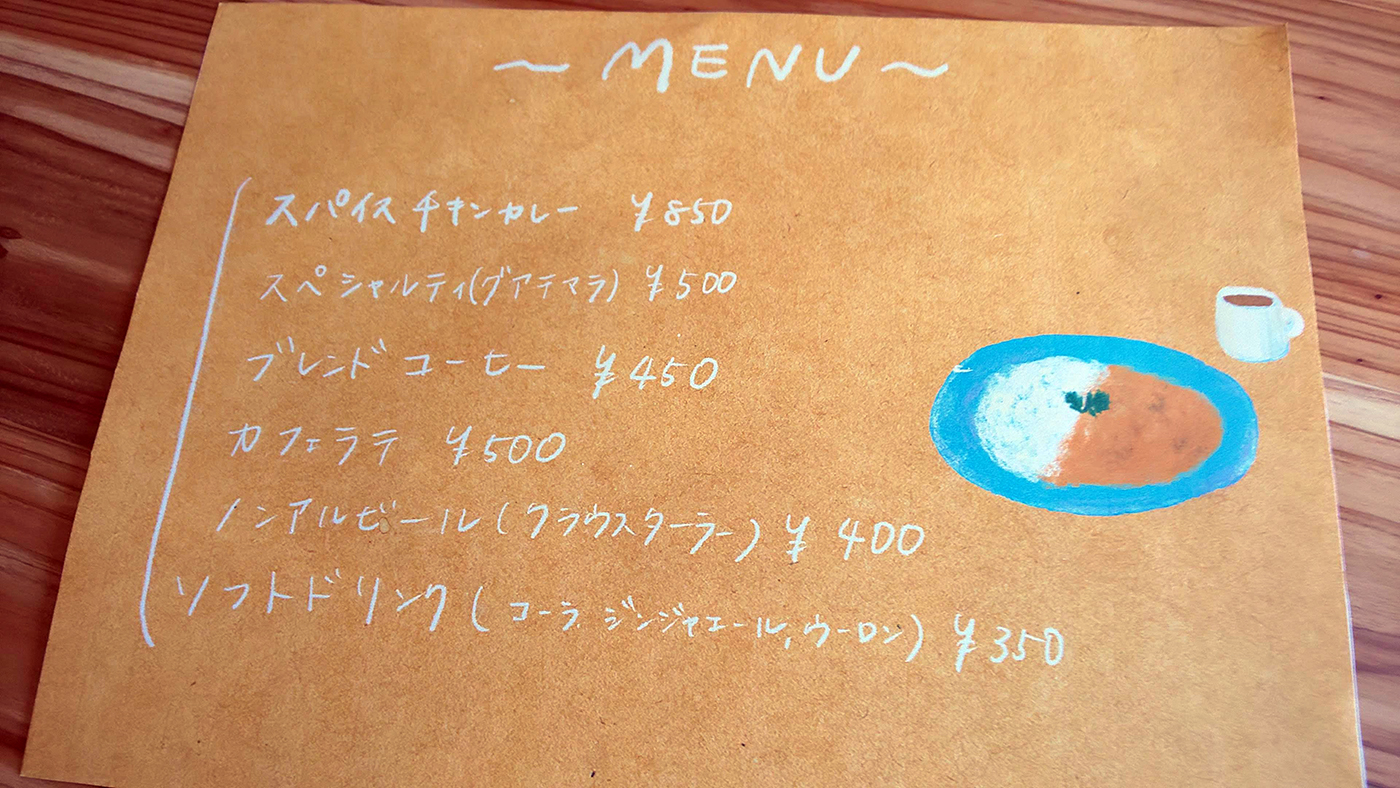 ～MENU～
スパイスチキンカレー ￥850
スペシャルティ(グアテマラ) ￥500
ブレンドコーヒー ￥450
カフェラテ ￥500
ノンアルビール(クラウスターラー) ￥400
ソフトドリンク(コーラ ジンジャエール,ウーロン) ￥350